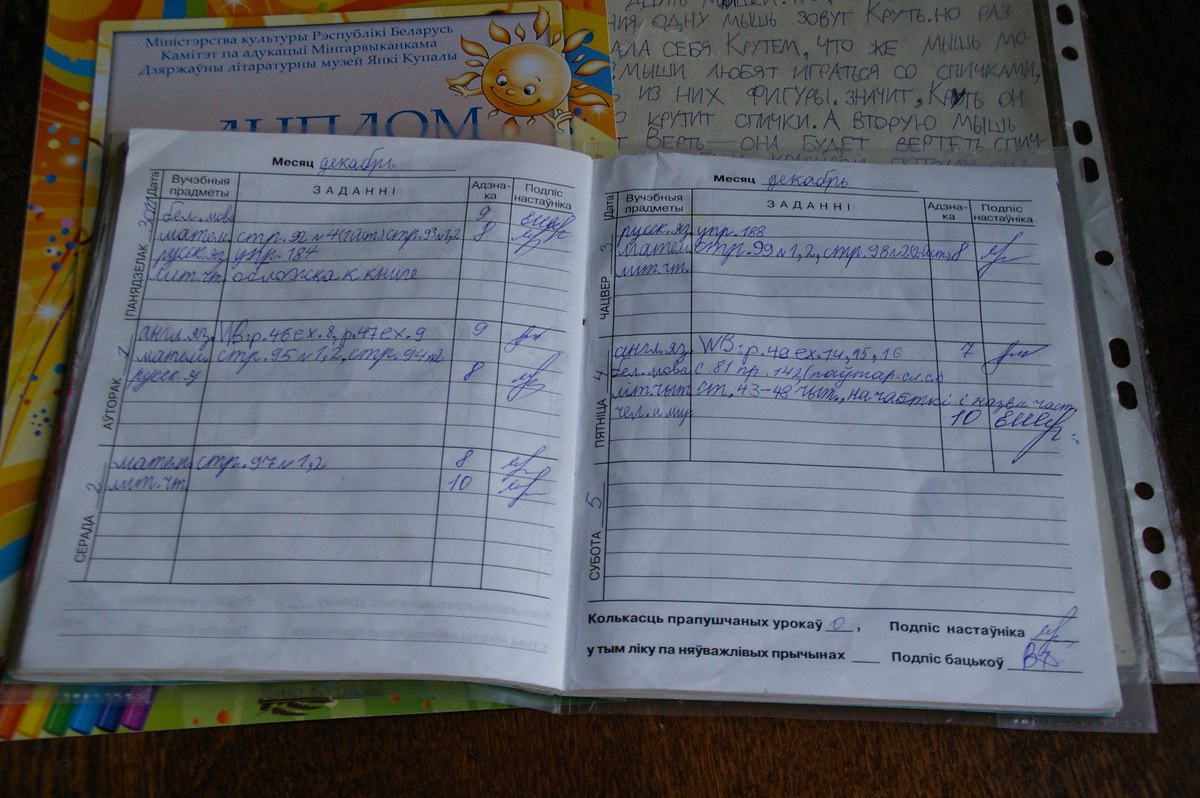 Міністэрства культуры Рэспублікі Беларусь
Камітэт па адукацыі Мінгарвыканкама
Дзяржаўны літаратурны музей Янкі Купалы
ДЫПЛОМ
ОДНУ МЫШЬ ЗОВУТ КРУТЬ. НО РАЗ
СЕБЯ КРУТЕМ, ЧТО ЖЕ МЫШЬ МО-
МЫШИ ЛЮБЯТ ИГРАТЬСЯ СО СПИЧКАМИ,
ИЗ НИХ ФИГУРЫ. ЗНАЧИТ, КРУТЬ ОН
КРУТИТ СПИЧКИ. А ВТОРУЮ МЫШЬ
ВЕРТЬ — ОНА БУДЕТ ВЕРТЕТЬ СПИЧ-
Месяц декабрь
Дата Вучэбныя прадметы ЗАДАННІ Адзна-ка Подпіс настаўніка
ПАНЯДЗЕЛАК
бел. мова 9
матем. стр. 92 №4 стр. 93 №1,2 8
русск. яз. упр. 187
лит. чт. обложка к книге
АЎТОРАК 1
англ. яз. WB: p. 46 ex. 8, p. 47 ex. 9 9
матем. стр. 95 №1,2, стр. 94 №2
русск. яз 8
СЕРАДА 2
матем. стр. 97 №1,2 8
лит. чт. 10
Месяц декабрь
Дата Вучэбныя прадметы ЗАДАННІ Адзна-ка Подпіс настаўніка
ЧАЦВЕР 3
русск. яз. упр. 188
матем. стр. 99 №1,2, стр. 98 8
лит. чт.
ПЯТНІЦА 4
англ. яз. WB: p. 48 ex. 14, 15, 16 7
бел. мова с. 81 пр. 142 (паўтар. сл. сл)
літ. чыт. ст. 43-48 чыт., на часткі і назвы част.
чел. и мир 10
СУБОТА 5
Колькасць прапушчаных урокаў 0, Подпіс настаўніка
у тым ліку па няўважлівых прычынах Подпіс бацькоў